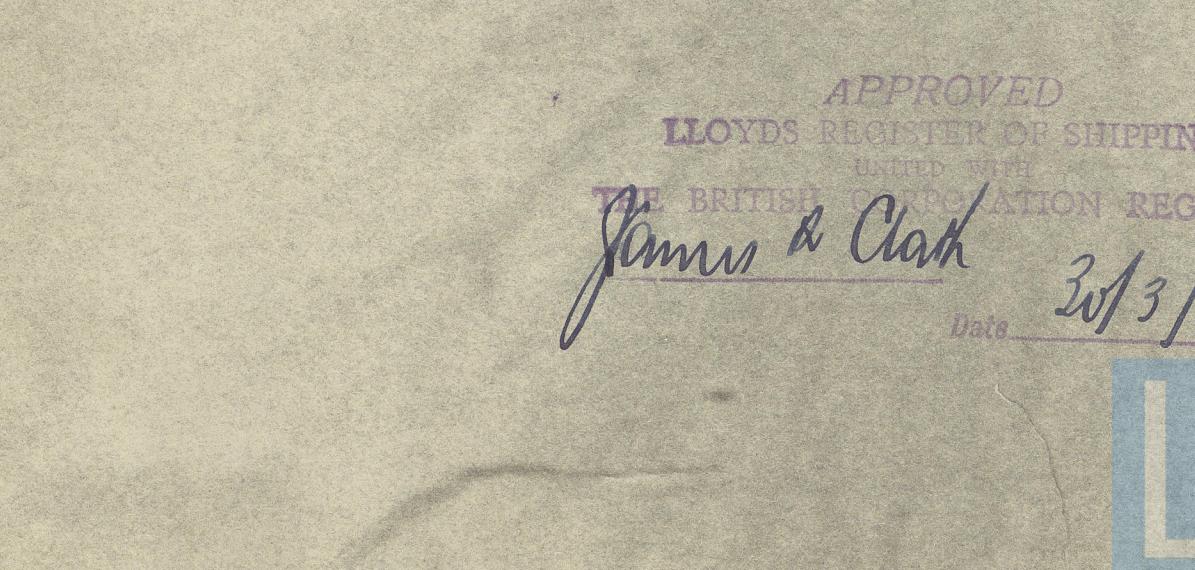 APPROVED
LLOYDS REGISTER OF SHIPPIN
UNITED WITH
THE BRITISH CORPORATION REG
James & Clark
Date 30/3/
L